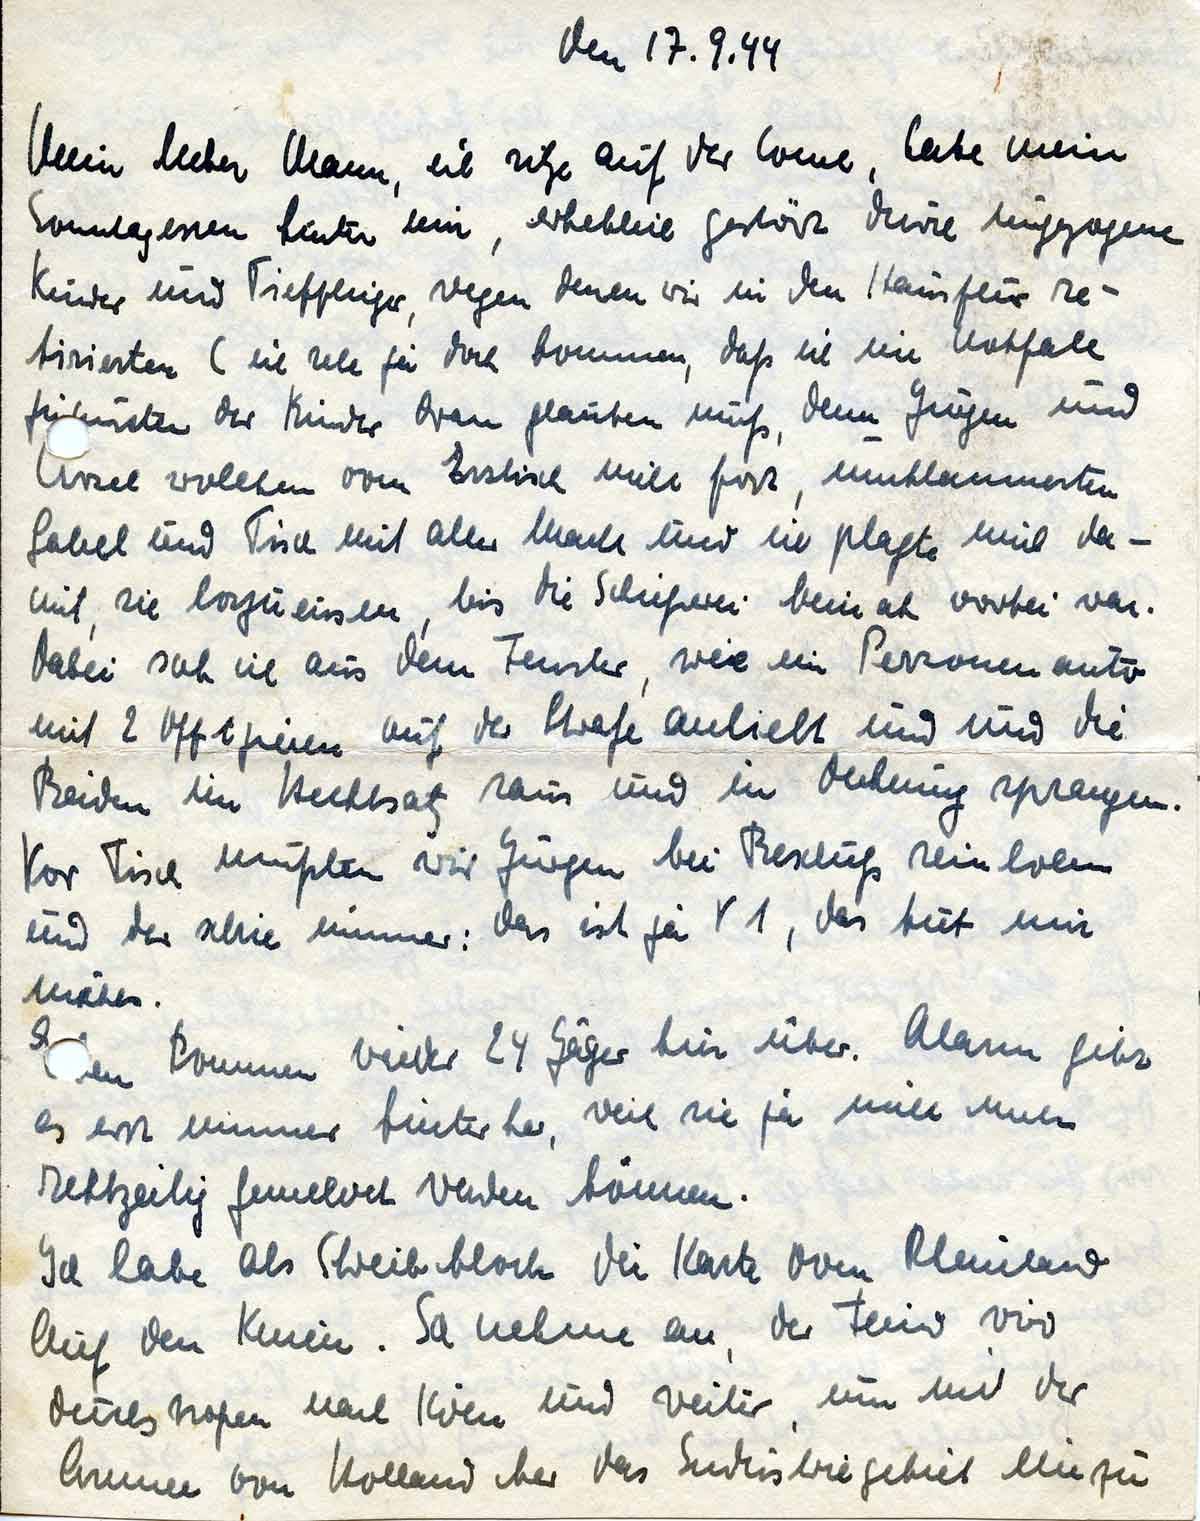 den 17.9.44
Mein lieber Mann, ich sitze auf der Couch, habe mein
Sonntagessen hinter mir, erheblich gestört durch ungezogene
Kinder und Tiefflieger, wegen denen wir in den Hausflur re-
tirierten (ich sehe ja doch kommen, daß ich im Notfall
zugunsten der Kinder dran glauben muß, denn Jürgen und
Ursel wollten vom Esstisch nicht fort, umklammerten
Gabel und Tisch mit aller Macht und ich plagte mich da-
mit, sie loszueissen, bis die Schiesserei beinah vorbei war.
Dabei sah ich aus dem Fenster, wie ein Personenauto
mit 2 Offizieren auf der Straße anhielt und und die
Beiden im Hechtsatz raus und in Deckung sprangen.
Vor Tisch mußten wir Jürgen bei Beschuß reinholen
und der schrie immer: das ist ja V 1, das tut mir
nichts.
Eben kommen wieder 24 Jäger hier über. Alarm gibt
es erst immer hinterher, weil sie ja nicht mehr
rechtzeitig gemeldet werden können.
Ich habe als Schreibblock die Karte vom Rheinland
auf den Knien. Ich nehme an, der Feind wird
durchstoßen nach Köln und weiter, um mit der
Armee von Holland her das Industriegebiet